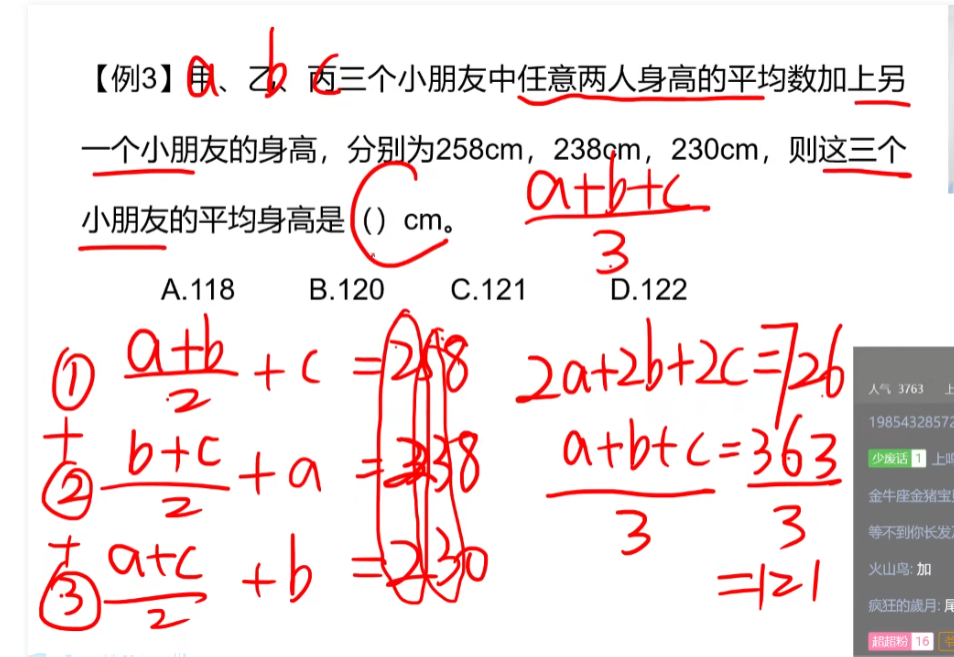 【例3】甲、乙、丙三个小朋友中任意两人身高的平均数加上另
a b c
一个小朋友的身高，分别为258cm，238cm，230cm，则这三个
小朋友的平均身高是（）cm。
a+b+c
3
A.118 B.120 C.121 D.122
① a+b
2
+c =258
+
② b+c
2
+a =238
+
③ a+c
2
+b =230
2a+2b+2c=726
a+b+c = 363
3 3
=121
人气 3763 上
1985432857
少废话 1 上
金牛座金猪宝
等不到你长发
火山鸟: 加
疯狂的歲月: 尾
超超粉 16